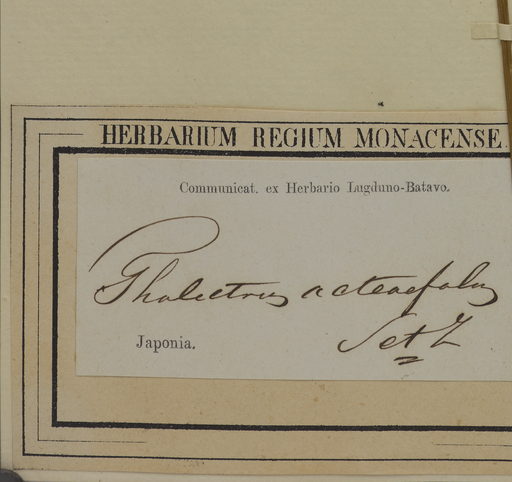 HERBARIUM REGIUM MONACENSE.
Communicat. ex Herbario Lugduno-Batavo.
Thalictrum actaefolium
S et Z
Japonia.